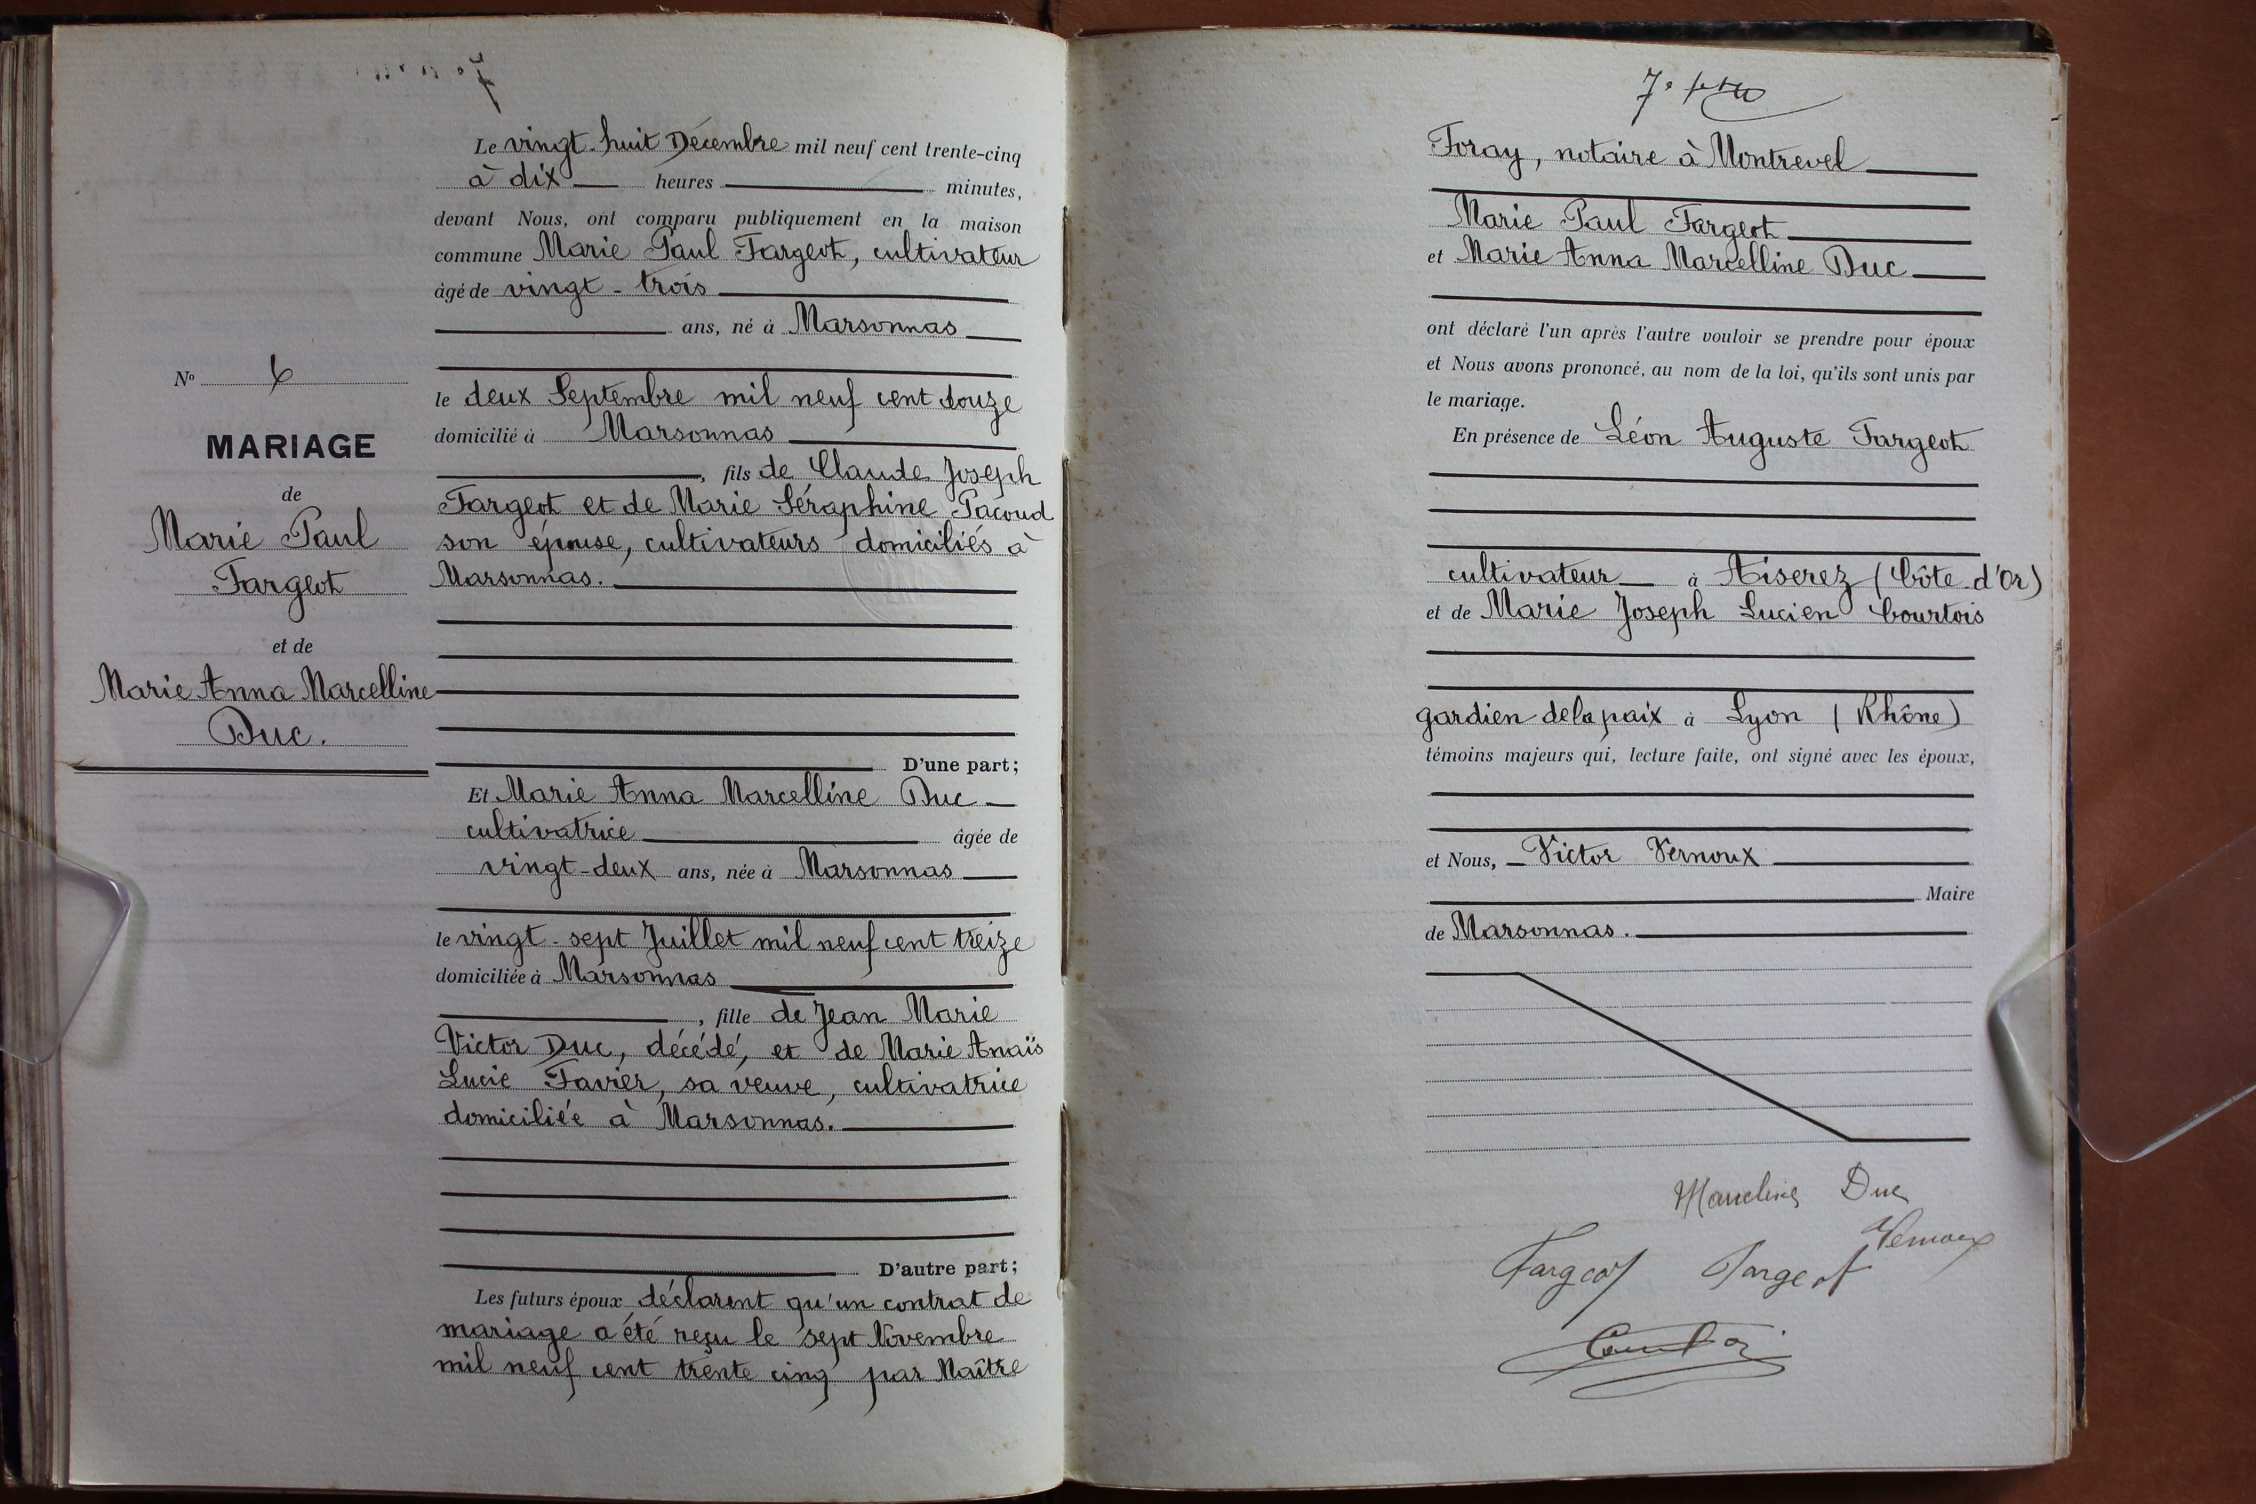 Le vingt-huit Décembre mil neuf cent trente-cinq
à dix heures minutes,
devant Nous, ont comparu publiquement en la maison
commune Marie Paul Fargeot, cultivateur
âgé de vingt-trois
ans, né à Marsonnas
le deux Septembre mil neuf cent douze
domicilié à Marsonnas
, fils de Claude Joseph
Fargeot et de Marie Séraphine Pacoud
son épouse, cultivateurs domiciliés à
Marsonnas.
D'une part;
Et Marie Anna Marcelline Duc
cultivatrice âgée de
vingt-deux ans, née à Marsonnas
le vingt-sept Juillet mil neuf cent treize
domiciliée à Marsonnas
, fille de Jean Marie
Victor Duc, décédé, et de Marie Anaïs
Lucie Favier, sa veuve, cultivatrice
domiciliée à Marsonnas.
D'autre part;
Les futurs époux déclarent qu'un contrat de
mariage a été reçu le sept Novembre
mil neuf cent trente cinq par Maître
No 6
MARIAGE
de
Marie Paul
Fargeot
et de
Marie Anna Marcelline
Duc.
Foray, notaire à Montrevel
Marie Paul Fargeot
et Marie Anna Marcelline Duc
ont déclaré l'un après l'autre vouloir se prendre pour époux
et Nous avons prononcé, au nom de la loi, qu'ils sont unis par
le mariage.
En présence de Léon Auguste Fargeot
cultivateur à Aiserez (Côte-d'Or)
et de Marie Joseph Lucien Courtois
gardien de la paix à Lyon (Rhône)
témoins majeurs qui, lecture faite, ont signé avec les époux,
et Nous, Victor Vernoux
Maire
de Marsonnas.
Marceline Duc
Vernoux
Fargeot Fargeot